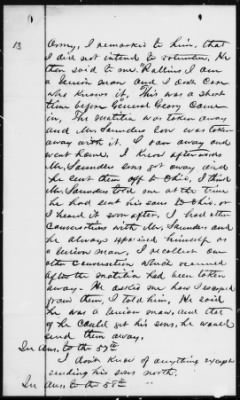 13 Army, I remarked to him, that
I did not intend to volunteer. He
then said to me. Rollins I am
a Union man and I don't care
who knows it. This was a short
time before General Geary came
in, The malitia was taken away
and Mr. Saunders son was taken
away with it. I ran away and
went home. I knew afterwards
Mr. Saunders sons got away and
he sent them off to Ohio, I think
Mr. Saunders told me at the time
he had sent his sons to Ohio, or
I heard it soon after. I had other
conversations with Mr. Saunders and
he always expressed himself as
a Union man, and I recollect one
other conversation, which occurred
after the malitia had been taken
away. He asked me how I escaped
from them, I told him, He said
he was a Union man, and that
if he could get his sons, he would
send them away.
In Ans. to the 57th
I don't know of anything except
sending his sons north.
In Ans. to the 58th "